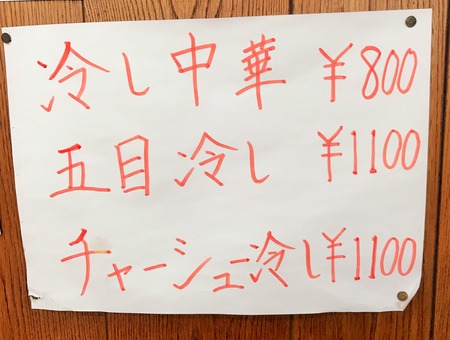 冷し中華 ¥800
五目冷し ¥1100
チャーシュー冷し¥1100